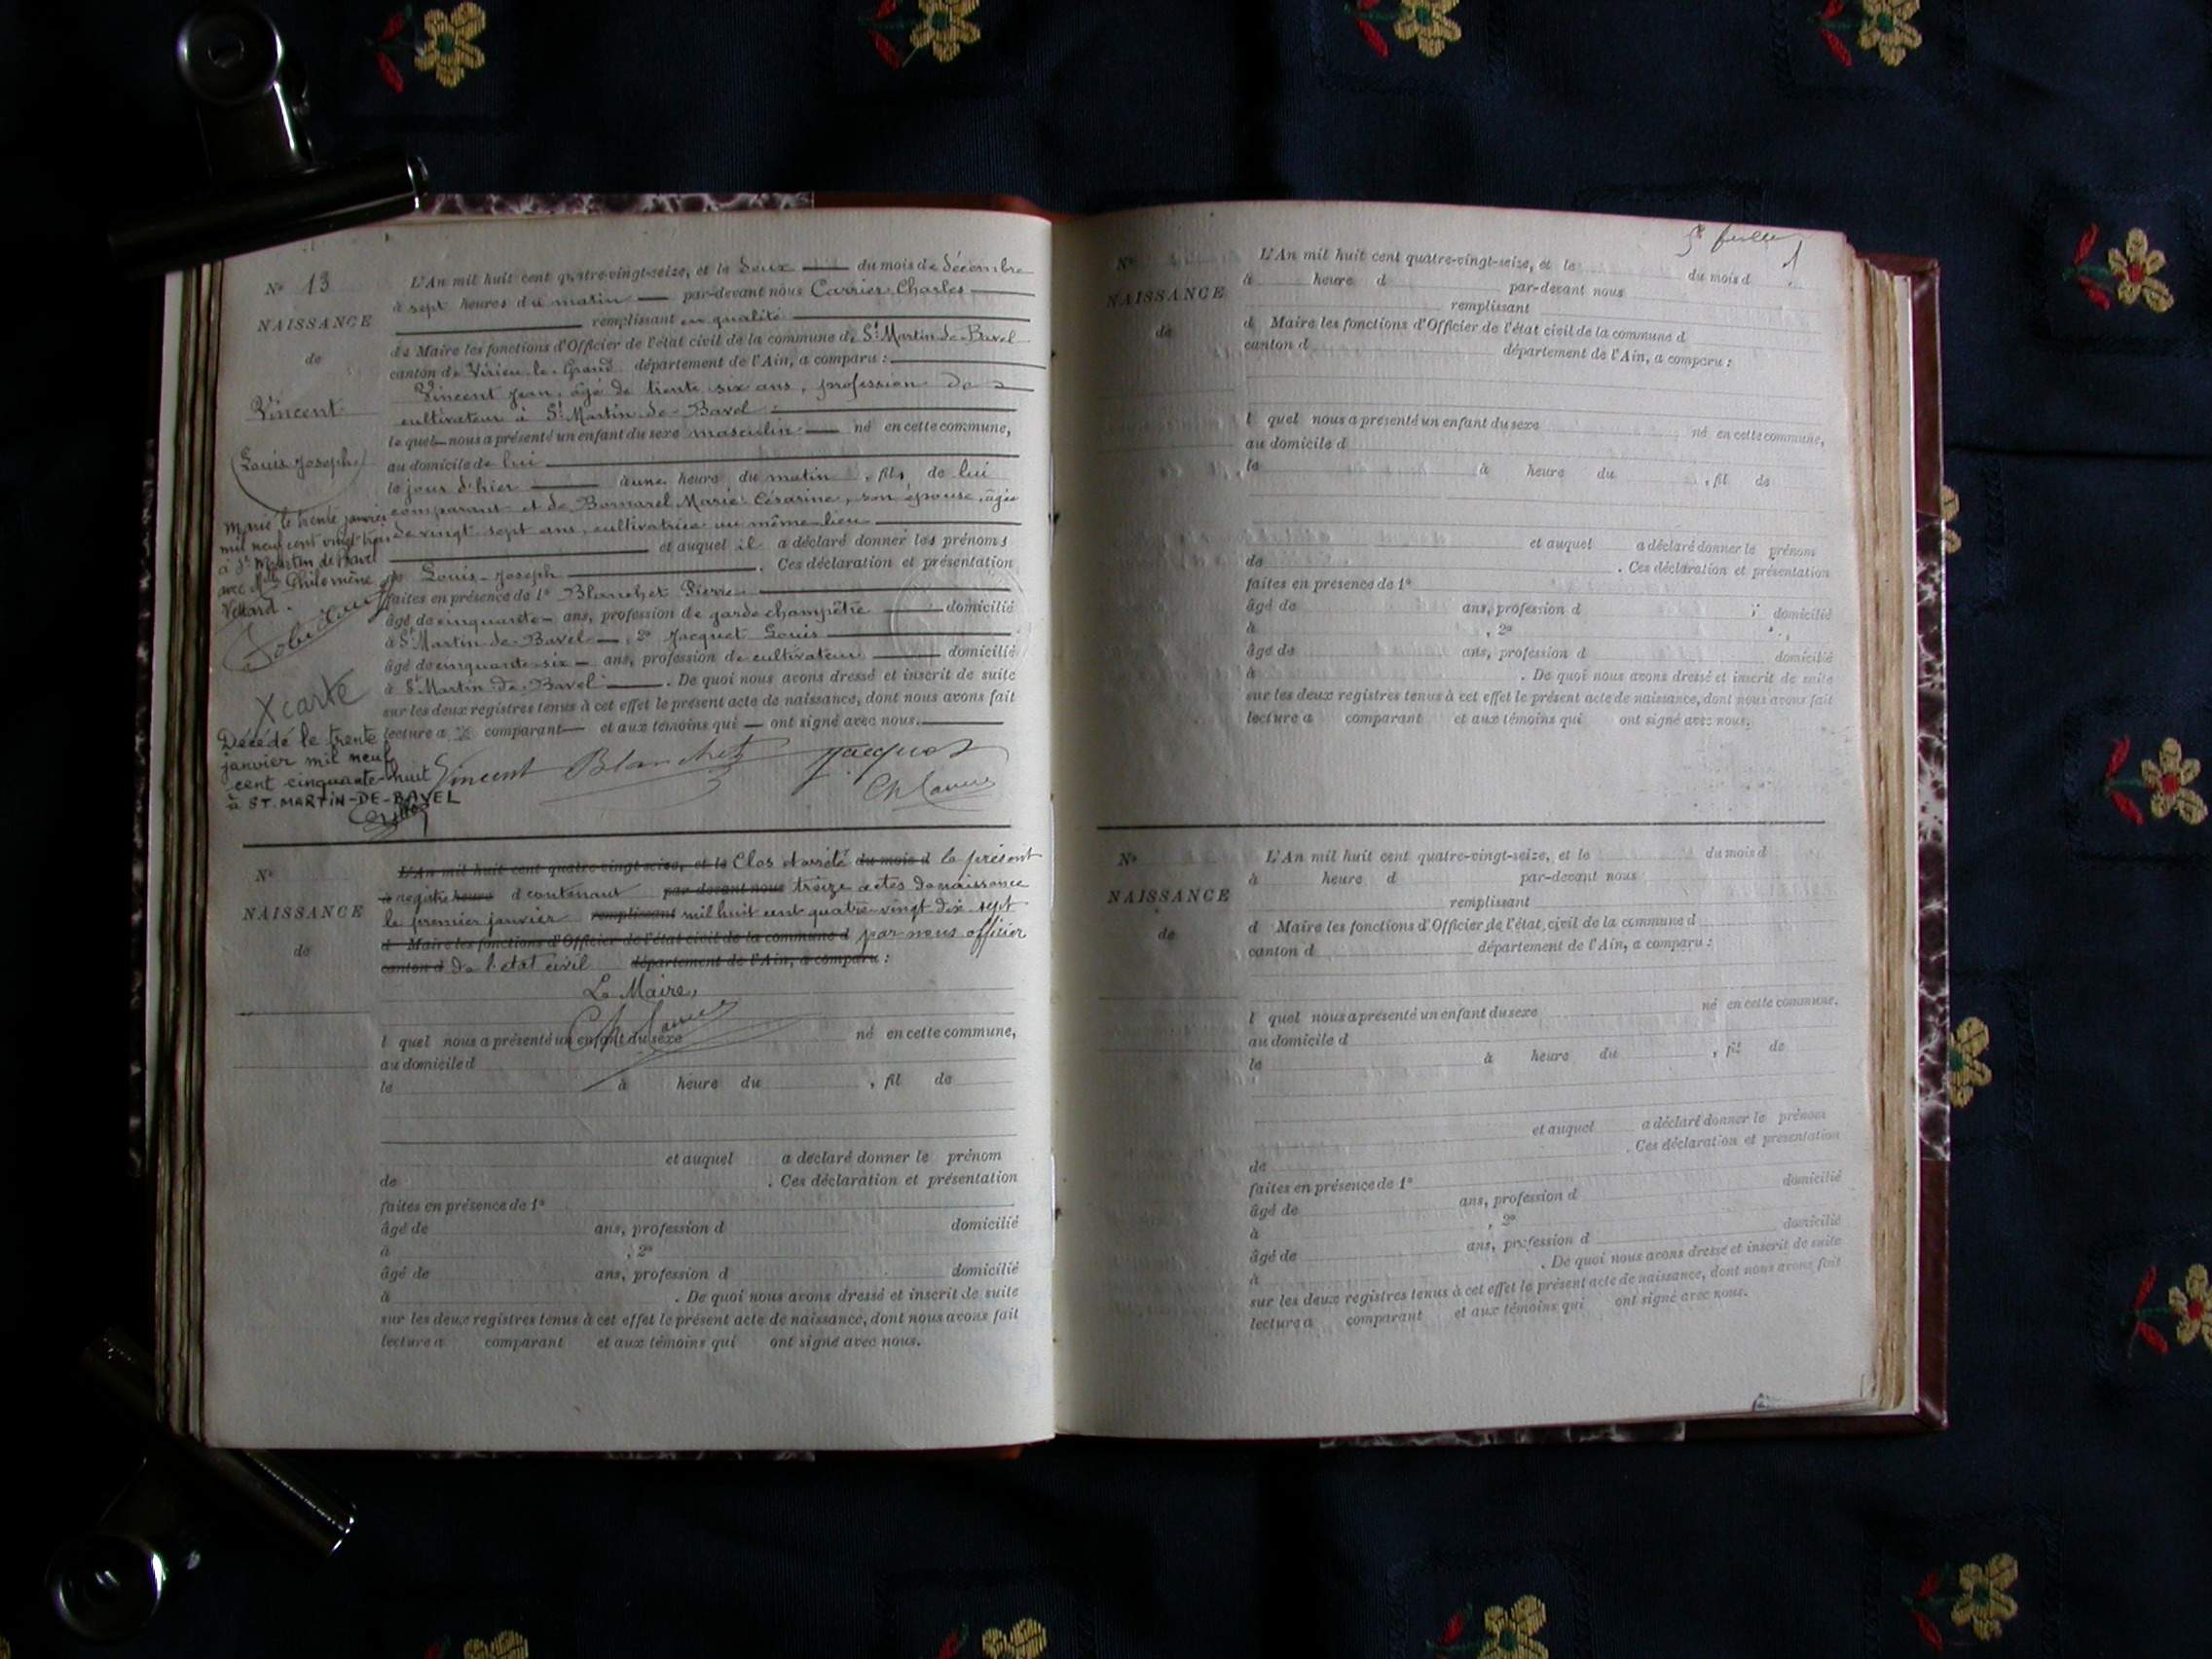 N° 13
NAISSANCE
de
Vincent
(Louis Joseph)
Marié le trente janvier
mil neuf cent vingt trois
à St Martin de Bavel
avec Mlle Philomène
Vettard.
X carte
Décédé le trente
janvier mil neuf
cent cinquante-huit
à ST. MARTIN-DE-BAVEL
L'An mil huit cent quatre-vingt-seize, et le deux du mois de décembre
à sept heures du matin par-devant nous Carrier Charles
remplissant en qualité
de Maire les fonctions d'Officier de l'état civil de la commune de St Martin-de-Bavel
canton de Virieu-le-Grand département de l'Ain, a comparu :
Vincent Jean, âgé de trente six ans, profession de
cultivateur à St Martin-de-Bavel
le quel nous a présenté un enfant du sexe masculin né en cette commune,
au domicile de lui
le jour d'hier à une heure du matin, fils de lui
comparant et de Bornarel Marie Césarine, son épouse, âgée
de vingt sept ans, cultivatrice au même lieu
et auquel il a déclaré donner les prénoms
de Louis-Joseph. Ces déclaration et présentation
faites en présence de 1° Blanchet Pierre
âgé de cinquante ans, profession de garde champêtre domicilié
à St Martin-de-Bavel, 2° Jacquet Louis
âgé de cinquante-six ans, profession de cultivateur domicilié
à St Martin-de-Bavel. De quoi nous avons dressé et inscrit de suite
sur les deux registres tenus à cet effet le présent acte de naissance, dont nous avons fait
lecture au comparant et aux témoins qui ont signé avec nous.
Vincent Blanchet Jacquet
Ch Carrier
N°
NAISSANCE
de
L'An mil huit cent quatre-vingt-seize, et le Clos et arrêté du mois d le présent
à registre heure d contenant par-devant nous treize actes de naissance
le premier janvier remplissant mil huit cent quatre-vingt dix-sept
d Maire les fonctions d'Officier de l'état civil de la commune d par nous officier
canton d de l'état civil département de l'Ain, a comparu :
Le Maire,
Ch Carrier
l quel nous a présenté un enfant du sexe né en cette commune,
au domicile d
le à heure du , fil de
et auquel a déclaré donner le prénom
de . Ces déclaration et présentation
faites en présence de 1°
âgé de ans, profession d domicilié
à , 2°
âgé de ans, profession d domicilié
à . De quoi nous avons dressé et inscrit de suite
sur les deux registres tenus à cet effet le présent acte de naissance, dont nous avons fait
lecture a comparant et aux témoins qui ont signé avec nous.
N°
NAISSANCE
de
L'An mil huit cent quatre-vingt-seize, et le du mois d
à heure d par-devant nous
remplissant
d Maire les fonctions d'Officier de l'état civil de la commune d
canton d département de l'Ain, a comparu :
l quel nous a présenté un enfant du sexe né en cette commune,
au domicile d
le à heure du , fil de
et auquel a déclaré donner le prénom
de . Ces déclaration et présentation
faites en présence de 1°
âgé de ans, profession d domicilié
à , 2°
âgé de ans, profession d domicilié
à . De quoi nous avons dressé et inscrit de suite
sur les deux registres tenus à cet effet le présent acte de naissance, dont nous avons fait
lecture a comparant et aux témoins qui ont signé avec nous.
N°
NAISSANCE
de
L'An mil huit cent quatre-vingt-seize, et le du mois d
à heure d par-devant nous
remplissant
d Maire les fonctions d'Officier de l'état civil de la commune d
canton d département de l'Ain, a comparu :
l quel nous a présenté un enfant du sexe né en cette commune,
au domicile d
le à heure du , fil de
et auquel a déclaré donner le prénom
de . Ces déclaration et présentation
faites en présence de 1°
âgé de ans, profession d domicilié
à , 2°
âgé de ans, profession d domicilié
à . De quoi nous avons dressé et inscrit de suite
sur les deux registres tenus à cet effet le présent acte de naissance, dont nous avons fait
lecture a comparant et aux témoins qui ont signé avec nous.